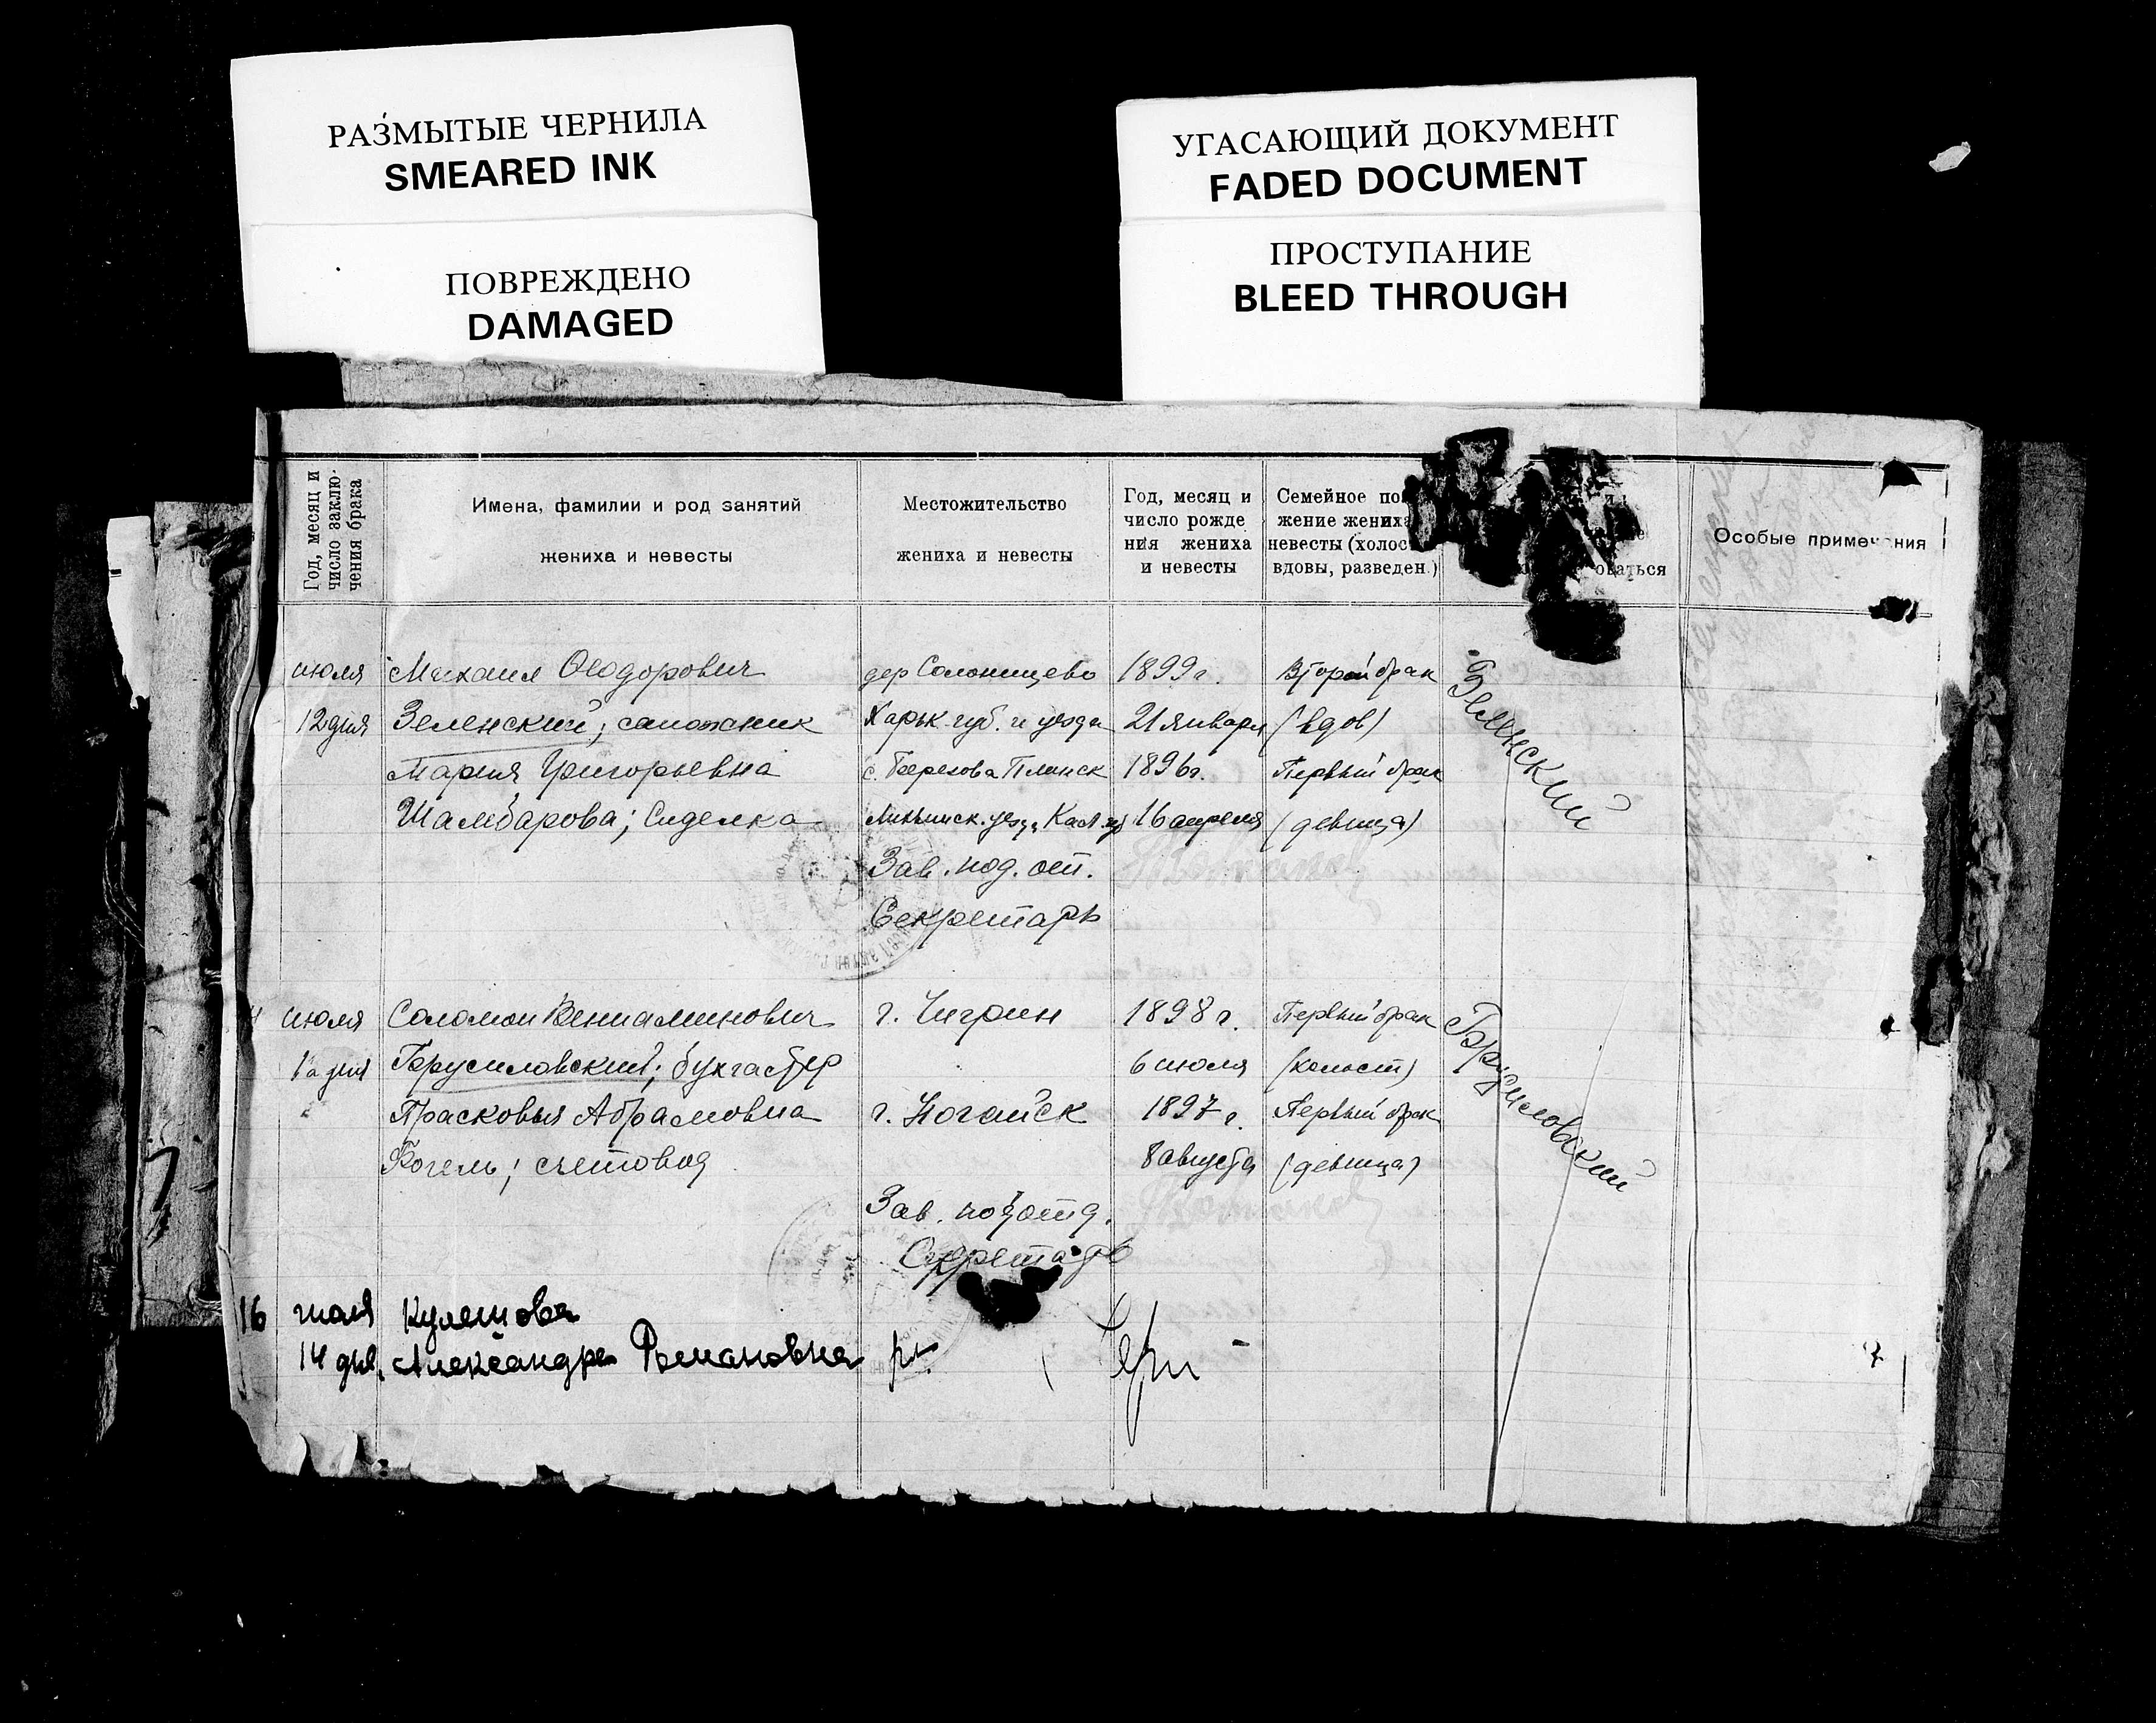 РАЗМЫТЫЕ ЧЕРНИЛА
SMEARED INK
ПОВРЕЖДЕНО
DAMAGED
УГАСАЮЩИЙ ДОКУМЕНТ
FADED DOCUMENT
ПРОСТУПАНИЕ
BLEED THROUGH
Год, месяц и
число заклю-
чения брака
Имена, фамилии и род занятий
жениха и невесты
Местожительство
жениха и невесты
Год, месяц и
число рожде
ния жениха
и невесты
Семейное по
жение жениха
невесты (холос
вдовы, разведен.)
Особые примечания
июля Михаил Феодорович дер Солоницево 1899 г. Второй брак
12 дня Зеленский; сапожник Харьк. губ. и уезда 21 января (вдов)
Мария Григорьевна с. Березова 1896 г. Первый брак
Шамбарова; Сиделка 16 апреля (девица)
Зеленский
Зав. под. от.
Секретарь
июля Соломон Вениаминович г. Чигрин 1898 г. Первый брак
дня Брусиловский; бухгалтер 6 июля (холост)
Прасковья Абрамовна г. Ногайск 1897 г. Первый брак
Фогель; счетовод 8 августа (девица)
Брусиловский
Зав. подотд.
Секретарь
16 июля Кулешова
14 дня. Александра Романовна